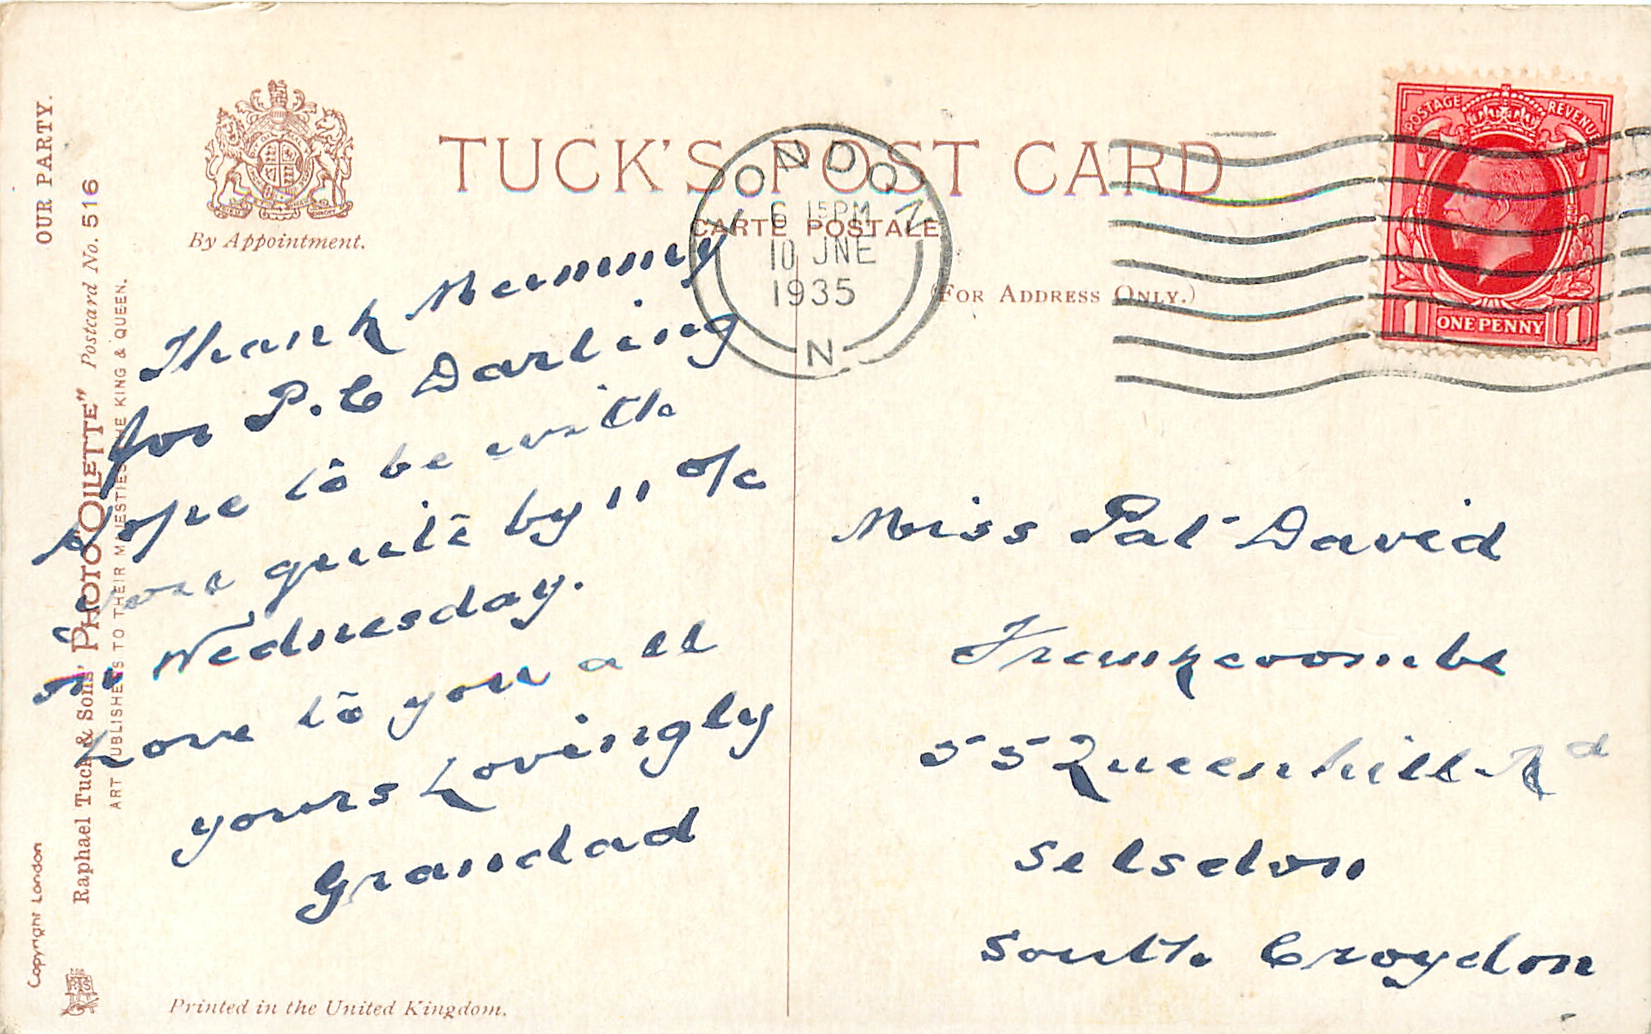 OUR PARTY.
Raphael Tuck & Sons' "PHOTO OILETTE" Postcard No. 516
ART PUBLISHERS TO THEIR MAJESTIES THE KING & QUEEN.
Copyright London
By Appointment.
TUCK'S POST CARD
CARTE POSTALE
(FOR ADDRESS ONLY.)
LONDON
6 15PM
10 JNE
1935
N
POSTAGE REVENUE
1 ONE PENNY 1
Thank Mummy
for P.C Darling
Hope to be with
quite by 11 o/c
on Wednesday.
Love to you all
yours Lovingly
Grandad
Miss Pat David
Frankcoombe
55 Queenhill Rd
Selsdon
South Croydon
RTS
Printed in the United Kingdom.